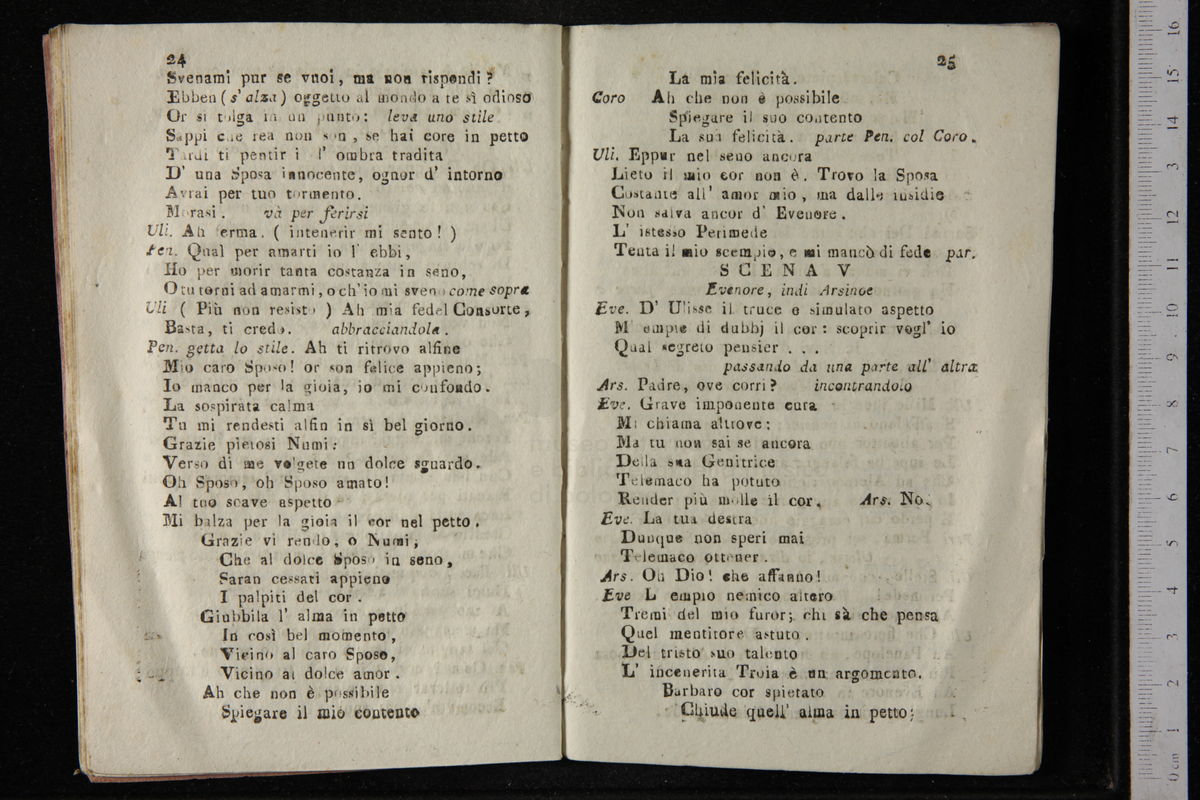 24
Svenami pur se vuoi, ma non rispondi?
Ebben (s' alza) oggetto al mondo a te sì odioso
Or si tolga in un punto: leva uno stile
Sappi che rea non son, se hai core in petto
Tardi ti pentir i l' ombra tradita
D' una Sposa innocente, ognor d' intorno
Avrai per tuo tormento.
Morasi. và per ferirsi
Uli. Ah ferma. ( intenerir mi sento! )
Pen. Qual per amarti io l' ebbi,
Ho per morir tanta costanza in seno,
O tu torni ad amarmi, o ch' io mi sveno come sopra
Uli ( Più non resisto ) Ah mia fedel Consorte,
Basta, ti credo. abbracciandola.
Pen. getta lo stile. Ah ti ritrovo alfine
Mio caro Sposo! or son felice appieno;
Io manco per la gioia, io mi confondo.
La sospirata calma
Tu mi rendesti alfin in sì bel giorno.
Grazie pietosi Numi:
Verso di me volgete un dolce sguardo.
Oh Sposo, oh Sposo amato!
Al tuo soave aspetto
Mi balza per la gioia il cor nel petto.
Grazie vi rendo, o Numi,
Che al dolce Sposo in seno,
Saran cessati appieno
I palpiti del cor.
Giubbila l' alma in petto
In così bel momento,
Vicino al caro Sposo,
Vicino al dolce amor.
Ah che non è possibile
Spiegare il mio contento
25
La mia felicità.
Coro Ah che non è possibile
Spiegare il suo contento
La sua felicità. parte Pen. col Coro.
Uli. Eppur nel seno ancora
Lieto il mio cor non è. Trovo la Sposa
Costante all' amor mio, ma dalle insidie
Non salva ancor d' Evenore.
L' istesso Perimede
Tenta il mio scempio, e mi mancò di fede par.
SCENA V
Evenore, indi Arsinoe
Eve. D' Ulisse il truce e simulato aspetto
M' empie di dubbj il cor: scoprir vogl' io
Qual segreto pensier . . .
passando da una parte all' altra
Ars. Padre, ove corri? incontrandolo
Eve. Grave imponente cura
Mi chiama altrove:
Ma tu non sai se ancora
Della sua Genitrice
Telemaco ha potuto
Render più molle il cor. Ars. No.
Eve. La tua destra
Dunque non speri mai
Telemaco ottener.
Ars. Oh Dio! che affanno!
Eve L' empio nemico altero
Tremi del mio furor; chi sà che pensa
Quel mentitore astuto.
Del tristo suo talento
L' incenerita Troia è un argomento.
Barbaro cor spietato
Chiude quell' alma in petto;